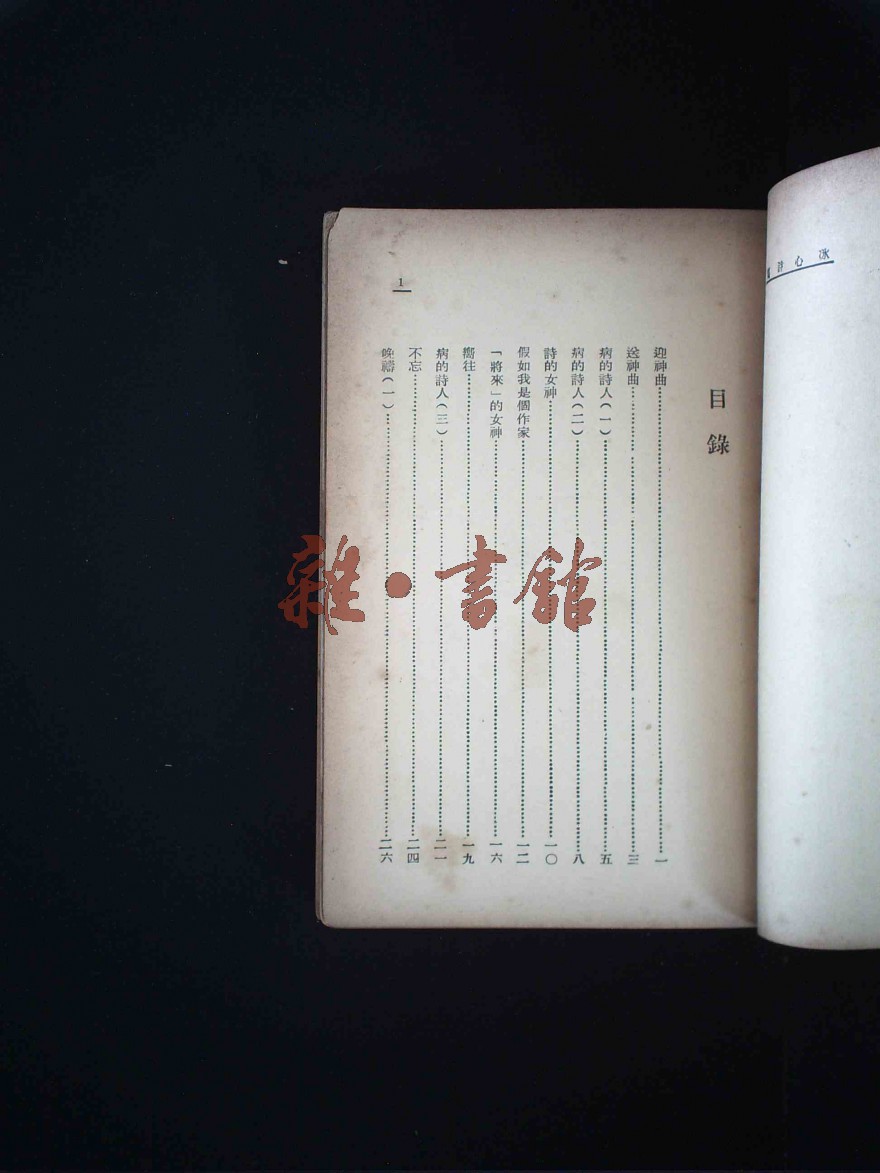 冰心詩
1
目錄
迎神曲……一
送神曲……三
病的詩人(一)……五
病的詩人(二)……八
詩的女神……一〇
假如我是個作家……一二
「將來」的女神……一六
嚮往……一九
病的詩人(三)……二一
不忘……二四
晚禱(一)……二六
雜·書館